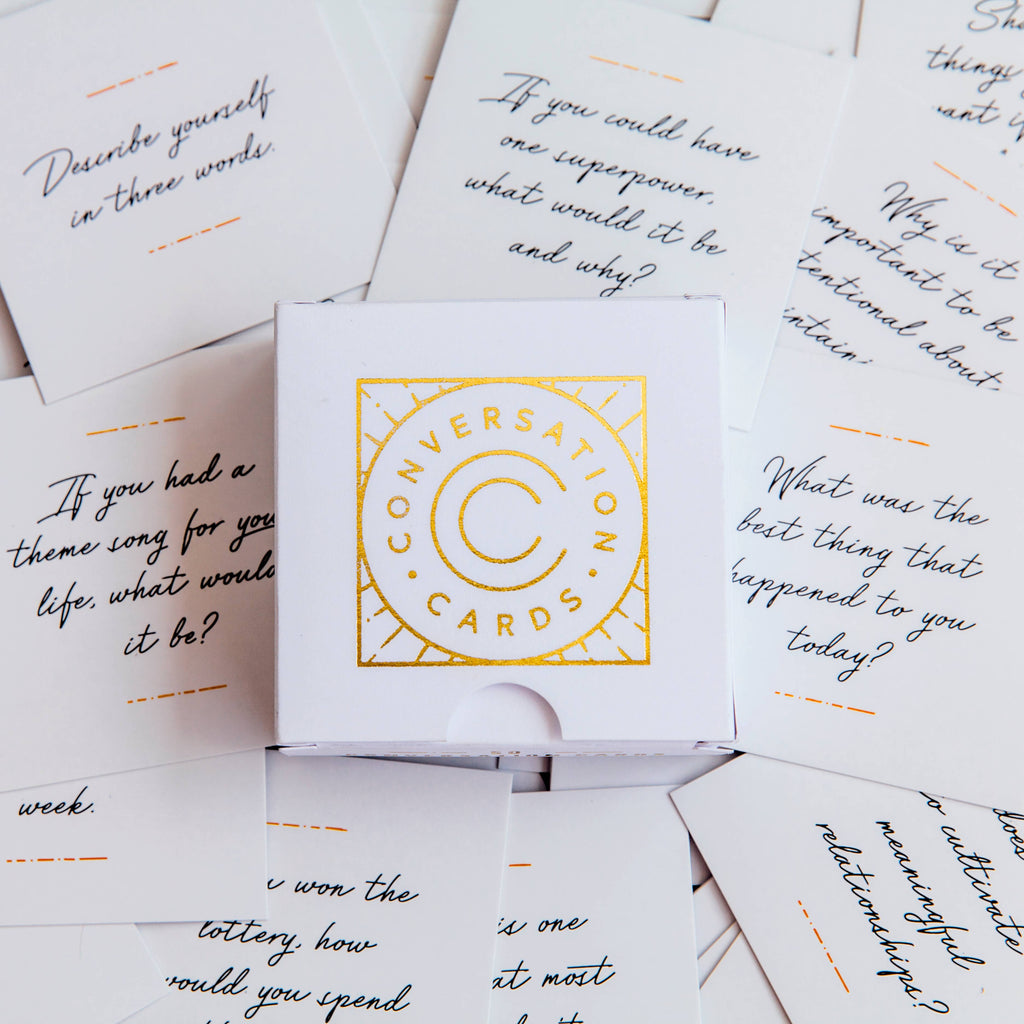 Describe yourself
in three words.
If you could have
one superpower,
what would it be
and why?
things
Why is it
important to be
about
If you had a
theme song for your
life, what would
it be?
CONVERSATION
CARDS
What was the
best thing that
happened to you
today?
week.
won the
lottery, how
would you spend
is one
at most
does
to cultivate
meaningful
relationships?